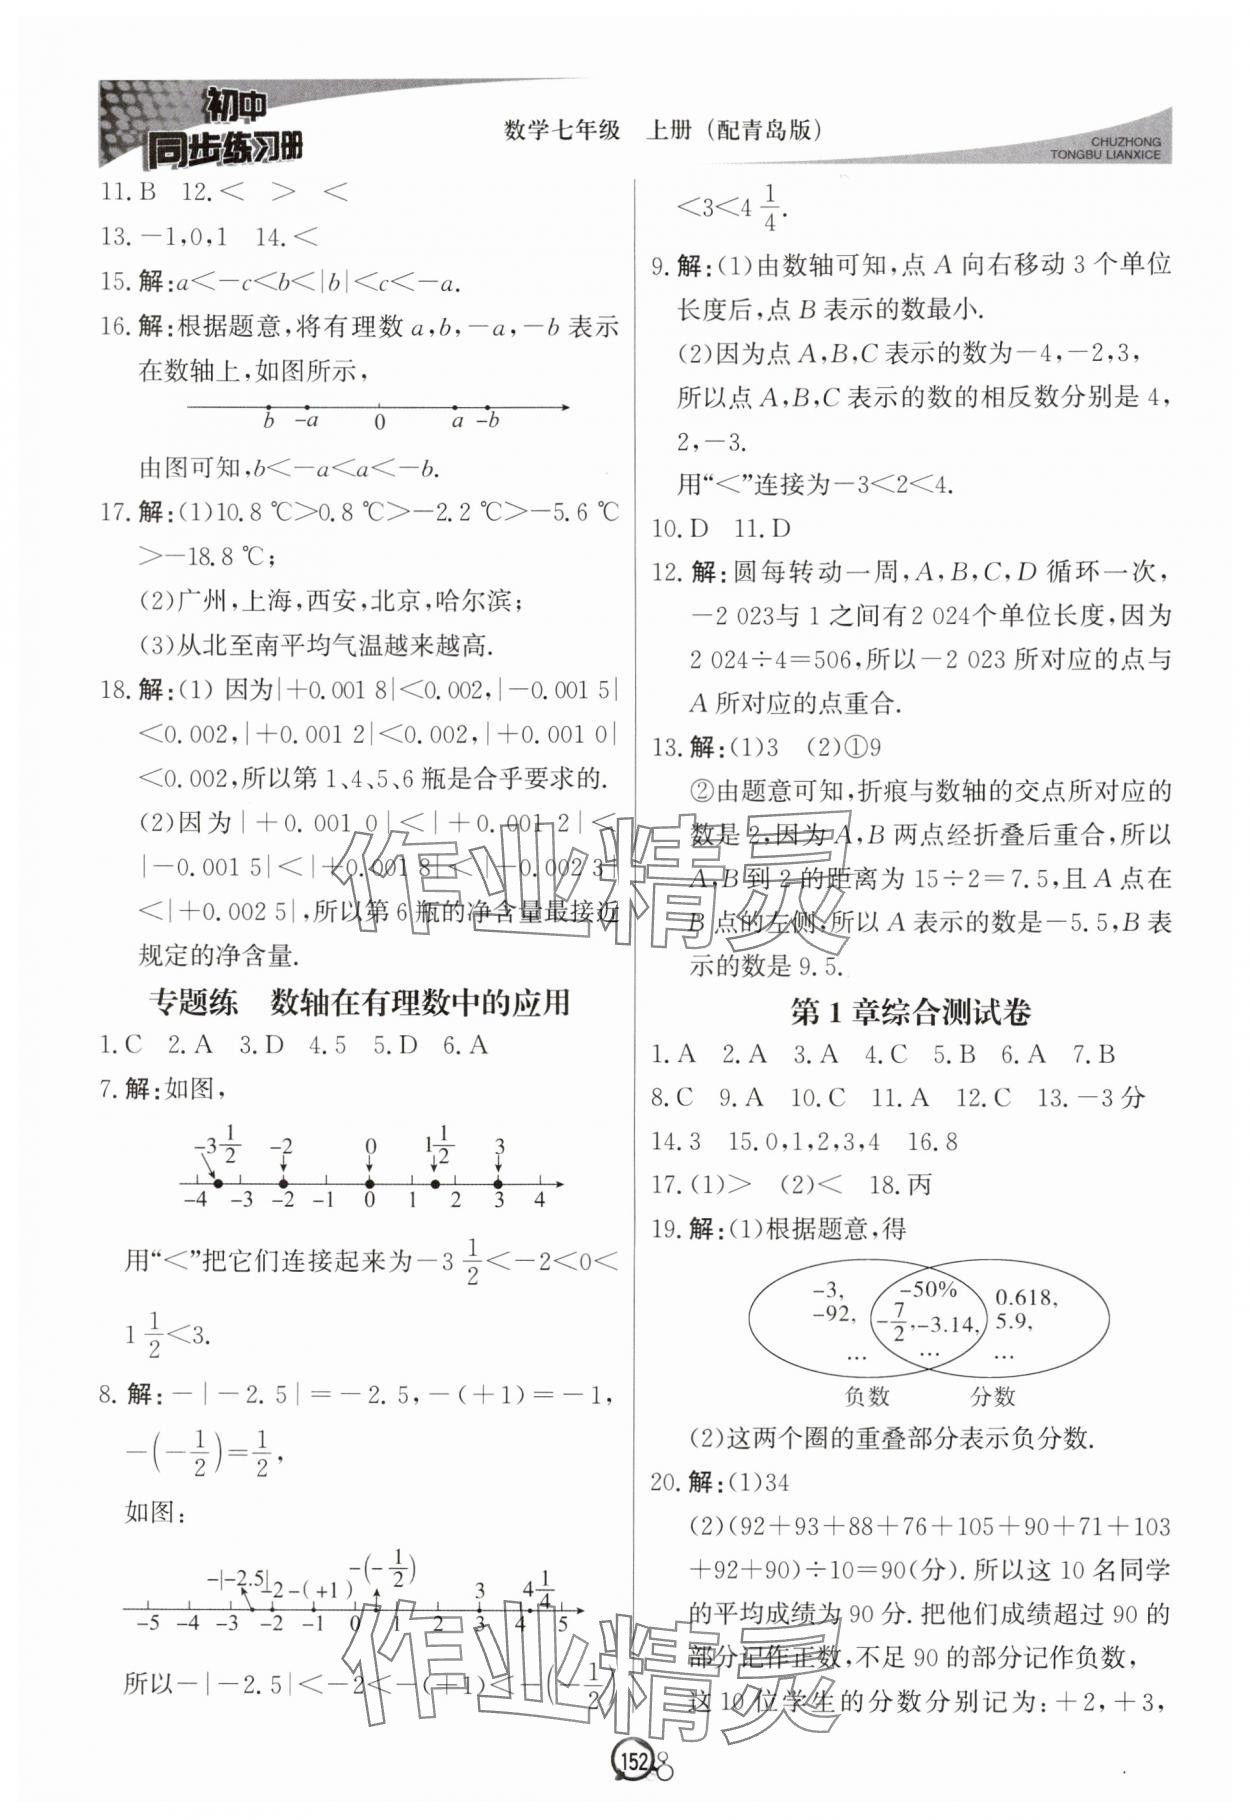 初中
同步练习册
数学七年级 上册(配青岛版)
CHUZHONG
TONGBU LIANXICE
11. B 12. < > <
13. -1,0,1 14. <
15. 解:a<-c<b<|b|<c<-a.
16. 解:根据题意,将有理数 a,b,-a,-b 表示
在数轴上,如图所示,
b -a 0 a -b
由图可知,b<-a<a<-b.
17. 解:(1)10.8 ℃>0.8 ℃>-2.2 ℃>-5.6 ℃
>-18.8 ℃;
(2)广州,上海,西安,北京,哈尔滨;
(3)从北至南平均气温越来越高.
18. 解:(1) 因为|+0.001 8|<0.002,|-0.001 5|
<0.002,|+0.001 2|<0.002,|+0.001 0|
<0.002,所以第 1、4、5、6 瓶是合乎要求的.
(2)因为|+0.001 0|<|+0.001 2|<
|-0.001 5|<|+0.001 8|<|-0.002 3|
<|+0.002 5|,所以第 6 瓶的净含量最接近
规定的净含量.
专题练 数轴在有理数中的应用
1. C 2. A 3. D 4. 5 5. D 6. A
7. 解:如图,
-3 1/2 -2 0 1 1/2 3
-4 -3 -2 -1 0 1 2 3 4
用“<”把它们连接起来为-3 1/2<-2<0<
1 1/2<3.
8. 解:-|-2.5|=-2.5,-(+1)=-1,
-(-1/2)=1/2,
如图:
-|-2.5| -2 -(+1) -(-1/2) 3 4 1/4
-5 -4 -3 -2 -1 0 1 2 3 4 5
所以-|-2.5|<-2<-(+1)<-(-1/2)
<3<4 1/4.
9. 解:(1)由数轴可知,点 A 向右移动 3 个单位
长度后,点 B 表示的数最小.
(2)因为点 A,B,C 表示的数为-4,-2,3,
所以点 A,B,C 表示的数的相反数分别是 4,
2,-3.
用“<”连接为-3<2<4.
10. D 11. D
12. 解:圆每转动一周,A,B,C,D 循环一次,
-2 023与 1 之间有2 024个单位长度,因为
2 024÷4=506,所以-2 023 所对应的点与
A 所对应的点重合.
13. 解:(1)3 (2)①9
②由题意可知,折痕与数轴的交点所对应的
数是 2,因为 A,B 两点经折叠后重合,所以
A,B 到 2 的距离为 15÷2=7.5,且 A 点在
B 点的左侧,所以 A 表示的数是-5.5,B 表
示的数是 9.5.
第 1 章综合测试卷
1. A 2. A 3. A 4. C 5. B 6. A 7. B
8. C 9. A 10. C 11. A 12. C 13. -3 分
14. 3 15. 0,1,2,3,4 16. 8
17. (1)> (2)< 18. 丙
19. 解:(1)根据题意,得
-3, -50% 0.618,
-92, -7/2,-3.14, 5.9,
… … …
负数 分数
(2)这两个圈的重叠部分表示负分数.
20. 解:(1)34
(2)(92+93+88+76+105+90+71+103
+92+90)÷10=90(分).所以这 10 名同学
的平均成绩为 90 分.把他们成绩超过 90 的
部分记作正数,不足 90 的部分记作负数,
这 10 位学生的分数分别记为:+2,+3,
作业精灵
作业精灵
152